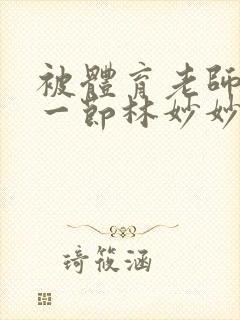 被體育老師
一節林妙妙
琦筱涵